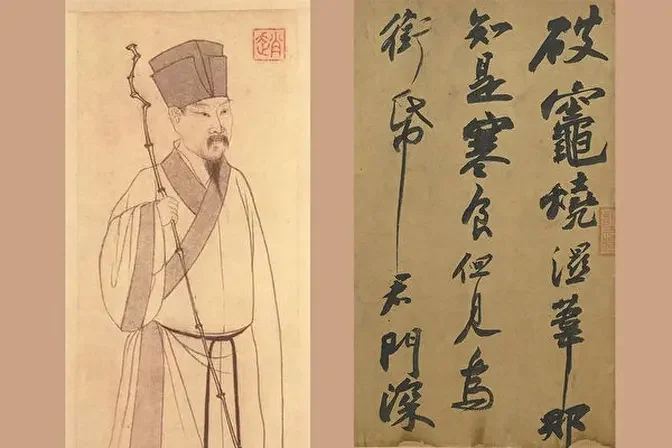 趙
破竈燒濕葦那
知是寒食但見烏
銜帋君門深